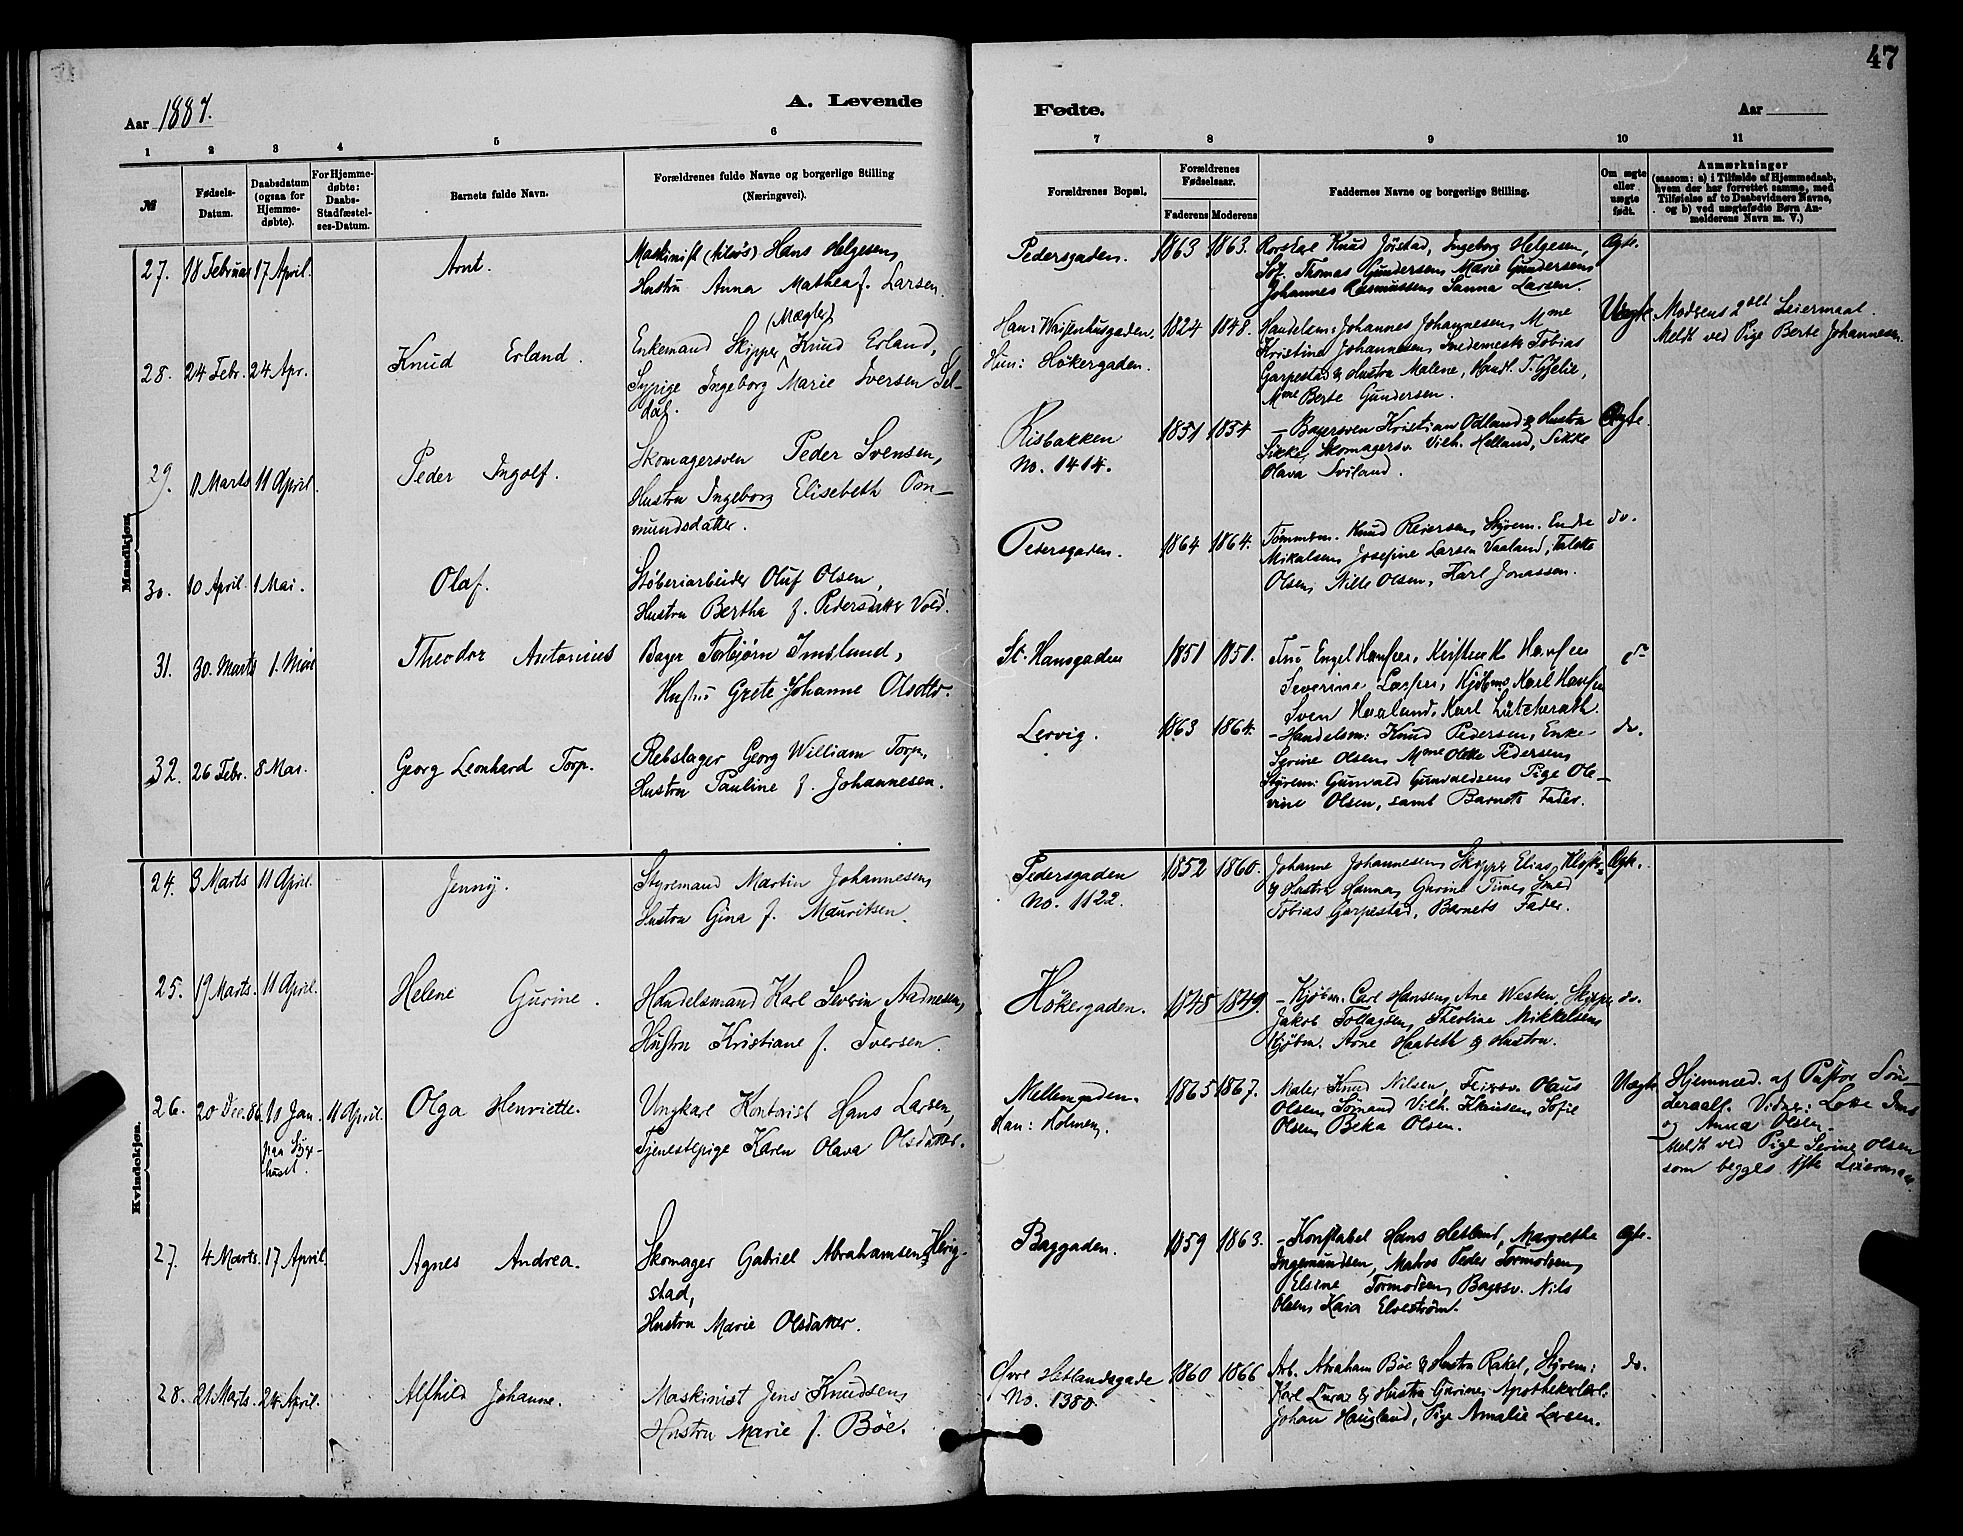 47
Aar 1887.
A. Levende
Fødte.
Aar
1
2
3
4
5
6
7
8
9
10
11
№
Fødsels-
Datum.
Daabsdatum
(ogsaa for
Hjemme-
døbte).
For Hjemme-
døbte:
Daabs-
Stadfæstel-
ses-Datum.
Barnets fulde Navn.
Forældrenes fulde Navne og borgerlige Stilling
(Næringsvei).
Forældrenes Bopæl.
Forældrenes
Fødselsaar.
Faderens Moderens
Faddernes Navne og borgerlige Stilling.
Om ægte
eller
uægte
født.
Anmærkninger
(saasom: a) i Tilfælde af Hjemmedaab,
hvem der har forrettet samme, med
Tilføielse af to Daabsvidners Navne,
og b) ved uægtefødte Børn An-
melderens Navn m. V.)
Mandkjøn.
27. 18 Februar 17 April.
Arnt.
Maskinist Hans Helgesen,
Hustru Anna Mathea f. Larsen.
Pedersgaden. 1863 1863.
Knud Jøistad, Ingeborg Helgesen,
Thomas Gundersen, Marie Gundersen,
Johannes Rasmussen, Sanna Larsen.
Ægte.
28. 24 Febr. 24 Apr.
Knud Erland.
(Mægler)
Enkemand Skipper Knud Erland,
Sypige Ingeborg Marie Iversen Sel-
dal.
Han: Waisenhusgaden.
Hun: Høkergaden.
1824 1848.
Handelsm: Johannes Johannesen, Mme
Kristine Johannesen, Smedemester Tobias
Garpestad & Hustru Malene, Handl. T. Gjelie,
Mme Berte Gundersen.
Uægte
Moderens 2det Leiermaal.
Meldt ved Pige Berte Johannesen.
29. 11 Marts 11 April.
Peder Ingolf.
Skomagersven Peder Svensen,
Hustru Ingeborg Elisebeth Om-
mundsdatter.
Risbakken
No. 1414.
1851 1854
- Bagersven Kristian Odland & Hustru
Sikke, Skomagersv. Vilh. Helland, Sikke
Olava Sviland.
Ægte.
30. 10 April. 1 Mai.
Olaf.
Støberiarbeider Oluf Olsen,
Hustru Bertha f. Pedersdatter Vold.
Pedersgaden. 1864 1864.
Tømmerm. Knud Reiersen, Styrem. Endre
Mikalsen, Josefine Larsen Vaaland, Talette
Olsen, Nille Olsen, Karl Jonassen.
do.
31. 30. Marts 1. Mai
Theodor Antonius
Bager Torbjørn Imsland,
Hustru Grete Johanne Olsdtr.
St. Hansgaden 1851 1851.
Engel Hansen, Kirsten K Hansen
Severine Larsen, Kjøbm Karl Hansen
Sven Haaland, Karl Lütcherath.
do
32. 26 Febr. 8 Mai.
Georg Leonhard Torp.
Rebslager Georg William Torp,
Hustru Pauline f. Johannesen.
Lervig. 1863 1864.
- Handelsm: Knud Pedersen, Enke-
Serine Olsen, Mme Olette Pedersen,
Styrem: Gunvald Gunvaldsen, Pige Ole-
vine Olsen, samt Barnets Fader.
do.
Kvindekjøn.
24. 3 Marts 11 April.
Jenny.
Styremand Martin Johannesen,
Hustru Gina f. Mauritsen.
Pedersgaden
No. 1122.
1852 1860.
Johanne Johannesen, Skipper Elias
& Hustru Hanna, Gurine Time, Smed
Tobias Garpestad, Barnets Fader.
Ægte.
25. 19 Marts. 11 April.
Helene Gurine.
Handelsmand Karl Severin Aadnesen,
Hustru Kristiane f. Iversen.
Høkergaden. 1848 1849.
- Kjøbm. Carl Hansen, Ane Westen, Skipper
Jakob Tollagsen, Theoline Mikkelsen,
Kjøbm. Arne Haabeth & Hustru.
do.
26. 20 Dec. 86. 10 Jan.
paa Syge-
huset.
11 April.
Olga Henriette.
Ungkarl Kontorist Hans Larsen,
Tjenestepige Karen Olava Olsdatter.
Møllegaden.
Han: Holmen.
1865 1867.
Maler Knud Nilsen, Feiersv. Olaus
Olsen, Sømand Vilh. Knudsen, Sofie
Olsen, Beka Olsen.
Uægte
Hjemmed. af Pastor Søn-
deraal. Vidner: Lotte Ims
og Anna Olsen.
Meldt ved Pige Serine Olsen
som begges 1ste Leiermaal.
27. 4 Marts. 17 April
Agnes Andrea.
Skomager Gabriel Abrahamsen Hérig-
stad,
Hustru Marie Olsdatter.
Baggaden. 1859 1863.
- Konstabel Hans Hetland, Margrethe
Ingemundsen, Matros Peder Tormodsen,
Elsine Tormodsen, Bagersv. Nils
Olsen, Kaia Elvestrøm.
Ægte.
28. 21 Marts. 24 April.
Alfhild Johanne.
Maskinist Jens Knudsen,
Hustru Marie f. Bøe.
Øvre Hetlandsgade
No. 1380.
1860 1866
Arb. Abraham Bøe & Hustru Rakel, Styrem:
Karl Lura & Hustru Gurine, Apothekerlærl.
Johan Haugland, Pige Amalie Larsen.
do.